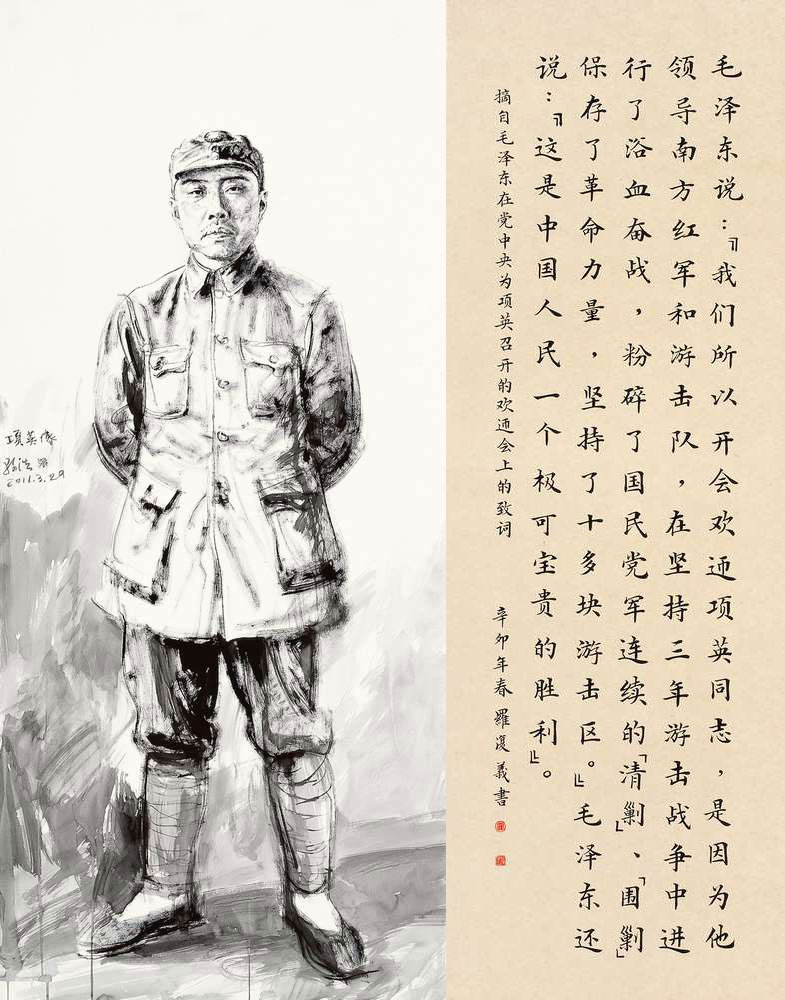 毛泽东说：『我们所以开会欢迎项英同志，是因为他
领导南方红军和游击队，在坚持三年游击战争中进
行了浴血奋战，粉碎了国民党军连续的「清剿」、「围剿」
保存了革命力量，坚持了十多块游击区。』毛泽东还
说：『这是中国人民一个极可宝贵的胜利』。
摘自毛泽东在党中央为项英召开的欢迎会上的致词
辛卯年春 羅復義書
項英像
2011.3.29